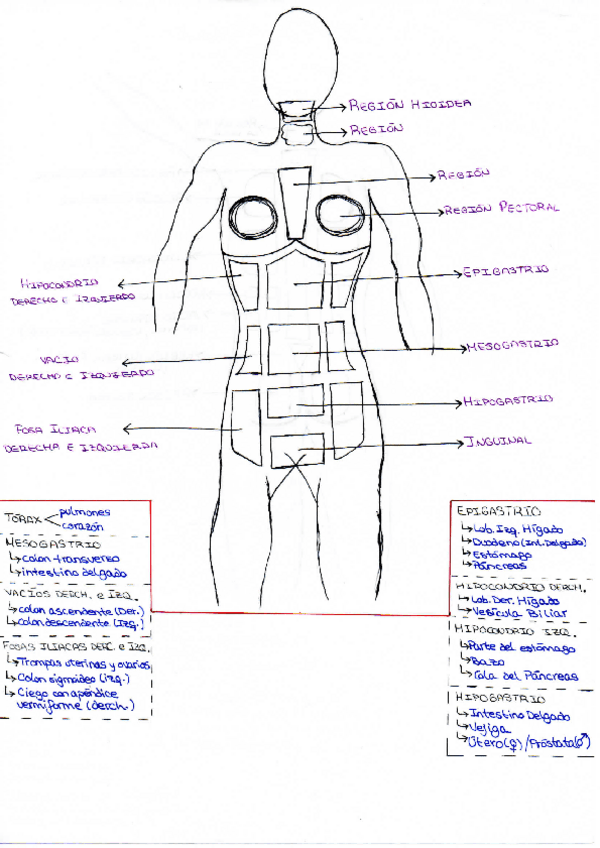 REGIÓN HIOIDEA
REGIÓN
REGIÓN
REGIÓN PECTORAL
HIPOCONDRIO
DERECHO E IZQUIERDO
EPIGASTRIO
VACIO
DERECHO E IZQUIERDO
MESOGASTRIO
HIPOGASTRIO
FOSA ILIACA
DERECHA E IZQUIERDA
INGUINAL
TÓRAX
pulmones
corazón
MESOGASTRIO
colon transverso
intestino delgado
VACIOS DERCH. E IZQ.
colon ascendente (Der.)
colon descendente (Izq.)
FOSAS ILIACAS DERC. E IZQ.
Trompas uterinas y ovarios
Colon sigmoideo (izq.)
Ciego con apéndice
vermiforme (derch.)
EPIGASTRIO
Lob. Izq. Hígado
Duodeno (Int. Delgado)
Estómago
Páncreas
HIPOCONDRIO DERCH.
Lob. Der. Hígado
Vesícula Biliar
HIPOCONDRIO IZQ.
Parte del estómago
Bazo
Cola del Páncreas
HIPOGASTRIO
Intestino Delgado
Vejiga
Útero(♀)/Próstata(♂)